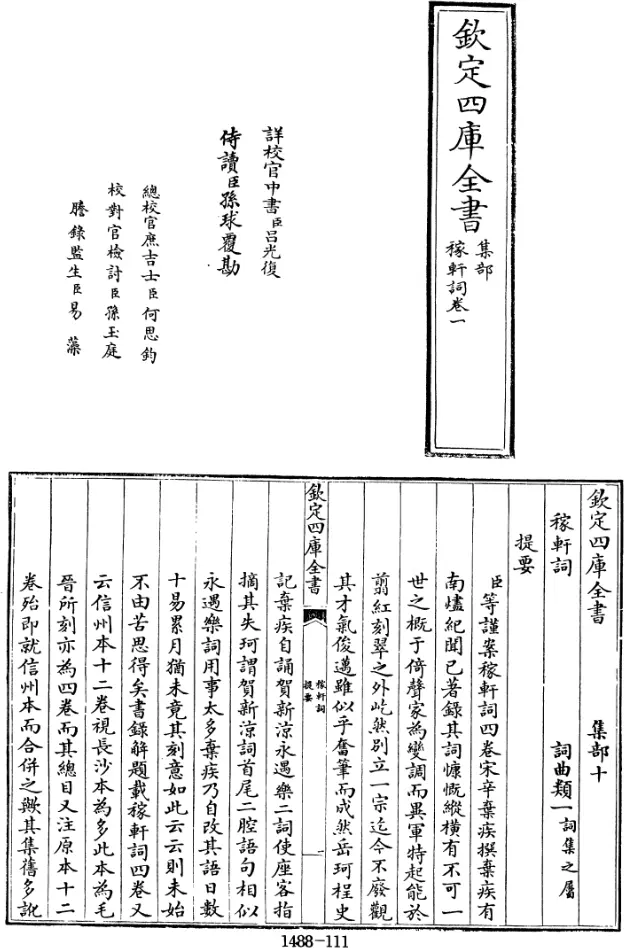 欽定四庫全書
集部
稼軒詞卷一
詳校官中書臣呂光復
侍讀臣孫球覆勘
總校官庶吉士臣何思鈞
校對官檢討臣孫玉庭
謄錄監生臣易藻
欽定四庫全書 集部十
稼軒詞 詞曲類一詞集之屬
提要
臣等謹案稼軒詞四卷宋辛棄疾撰棄疾有
南燼紀聞已著錄其詞慷慨縱橫有不可一
世之概于倚聲家為變調而異軍特起能於
翦紅刻翠之外屹然別立一宗迄今不廢觀
其才氣俊邁雖似乎奮筆而成然岳珂桯史
欽定四庫全書
稼軒詞
提要
一
記棄疾自誦賀新涼永遇樂二詞使座客指
摘其失珂謂賀新涼詞首尾二腔語句相似
永遇樂詞用事太多棄疾乃自改其語日數
十易累月猶未竟其刻意如此云云則未始
不由苦思得矣書錄解題載稼軒詞四卷又
云信州本十二卷視長沙本為多此本為毛
晉所刻亦為四卷而其總目又注原本十二
卷殆即就信州本而合併之歟其集舊多訛
1488-111